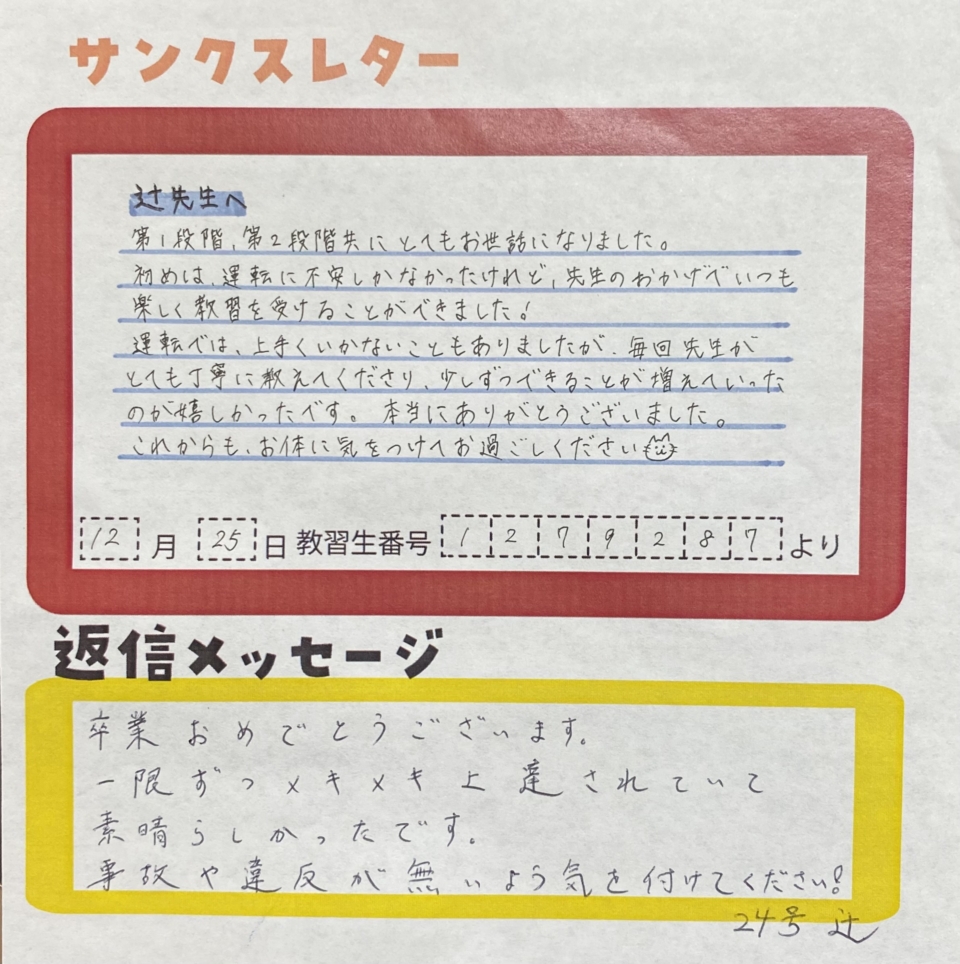 サンクスレター
辻先生へ
第1段階、第2段階共にとてもお世話になりました。
初めは、運転に不安しかなかったけれど、先生のおかげでいつも
楽しく教習を受けることができました！
運転では、上手くいかないこともありましたが、毎回先生が
とても丁寧に教えてくださり、少しずつできることが増えていった
のが嬉しかったです。本当にありがとうございました。
これからも、お体に気をつけてお過ごしください
12月25日 教習生番号 1279287より
返信メッセージ
卒業おめでとうございます。
一限ずつメキメキ上達されていて
素晴らしかったです。
事故や違反が無いよう気を付けてください!
24号 辻